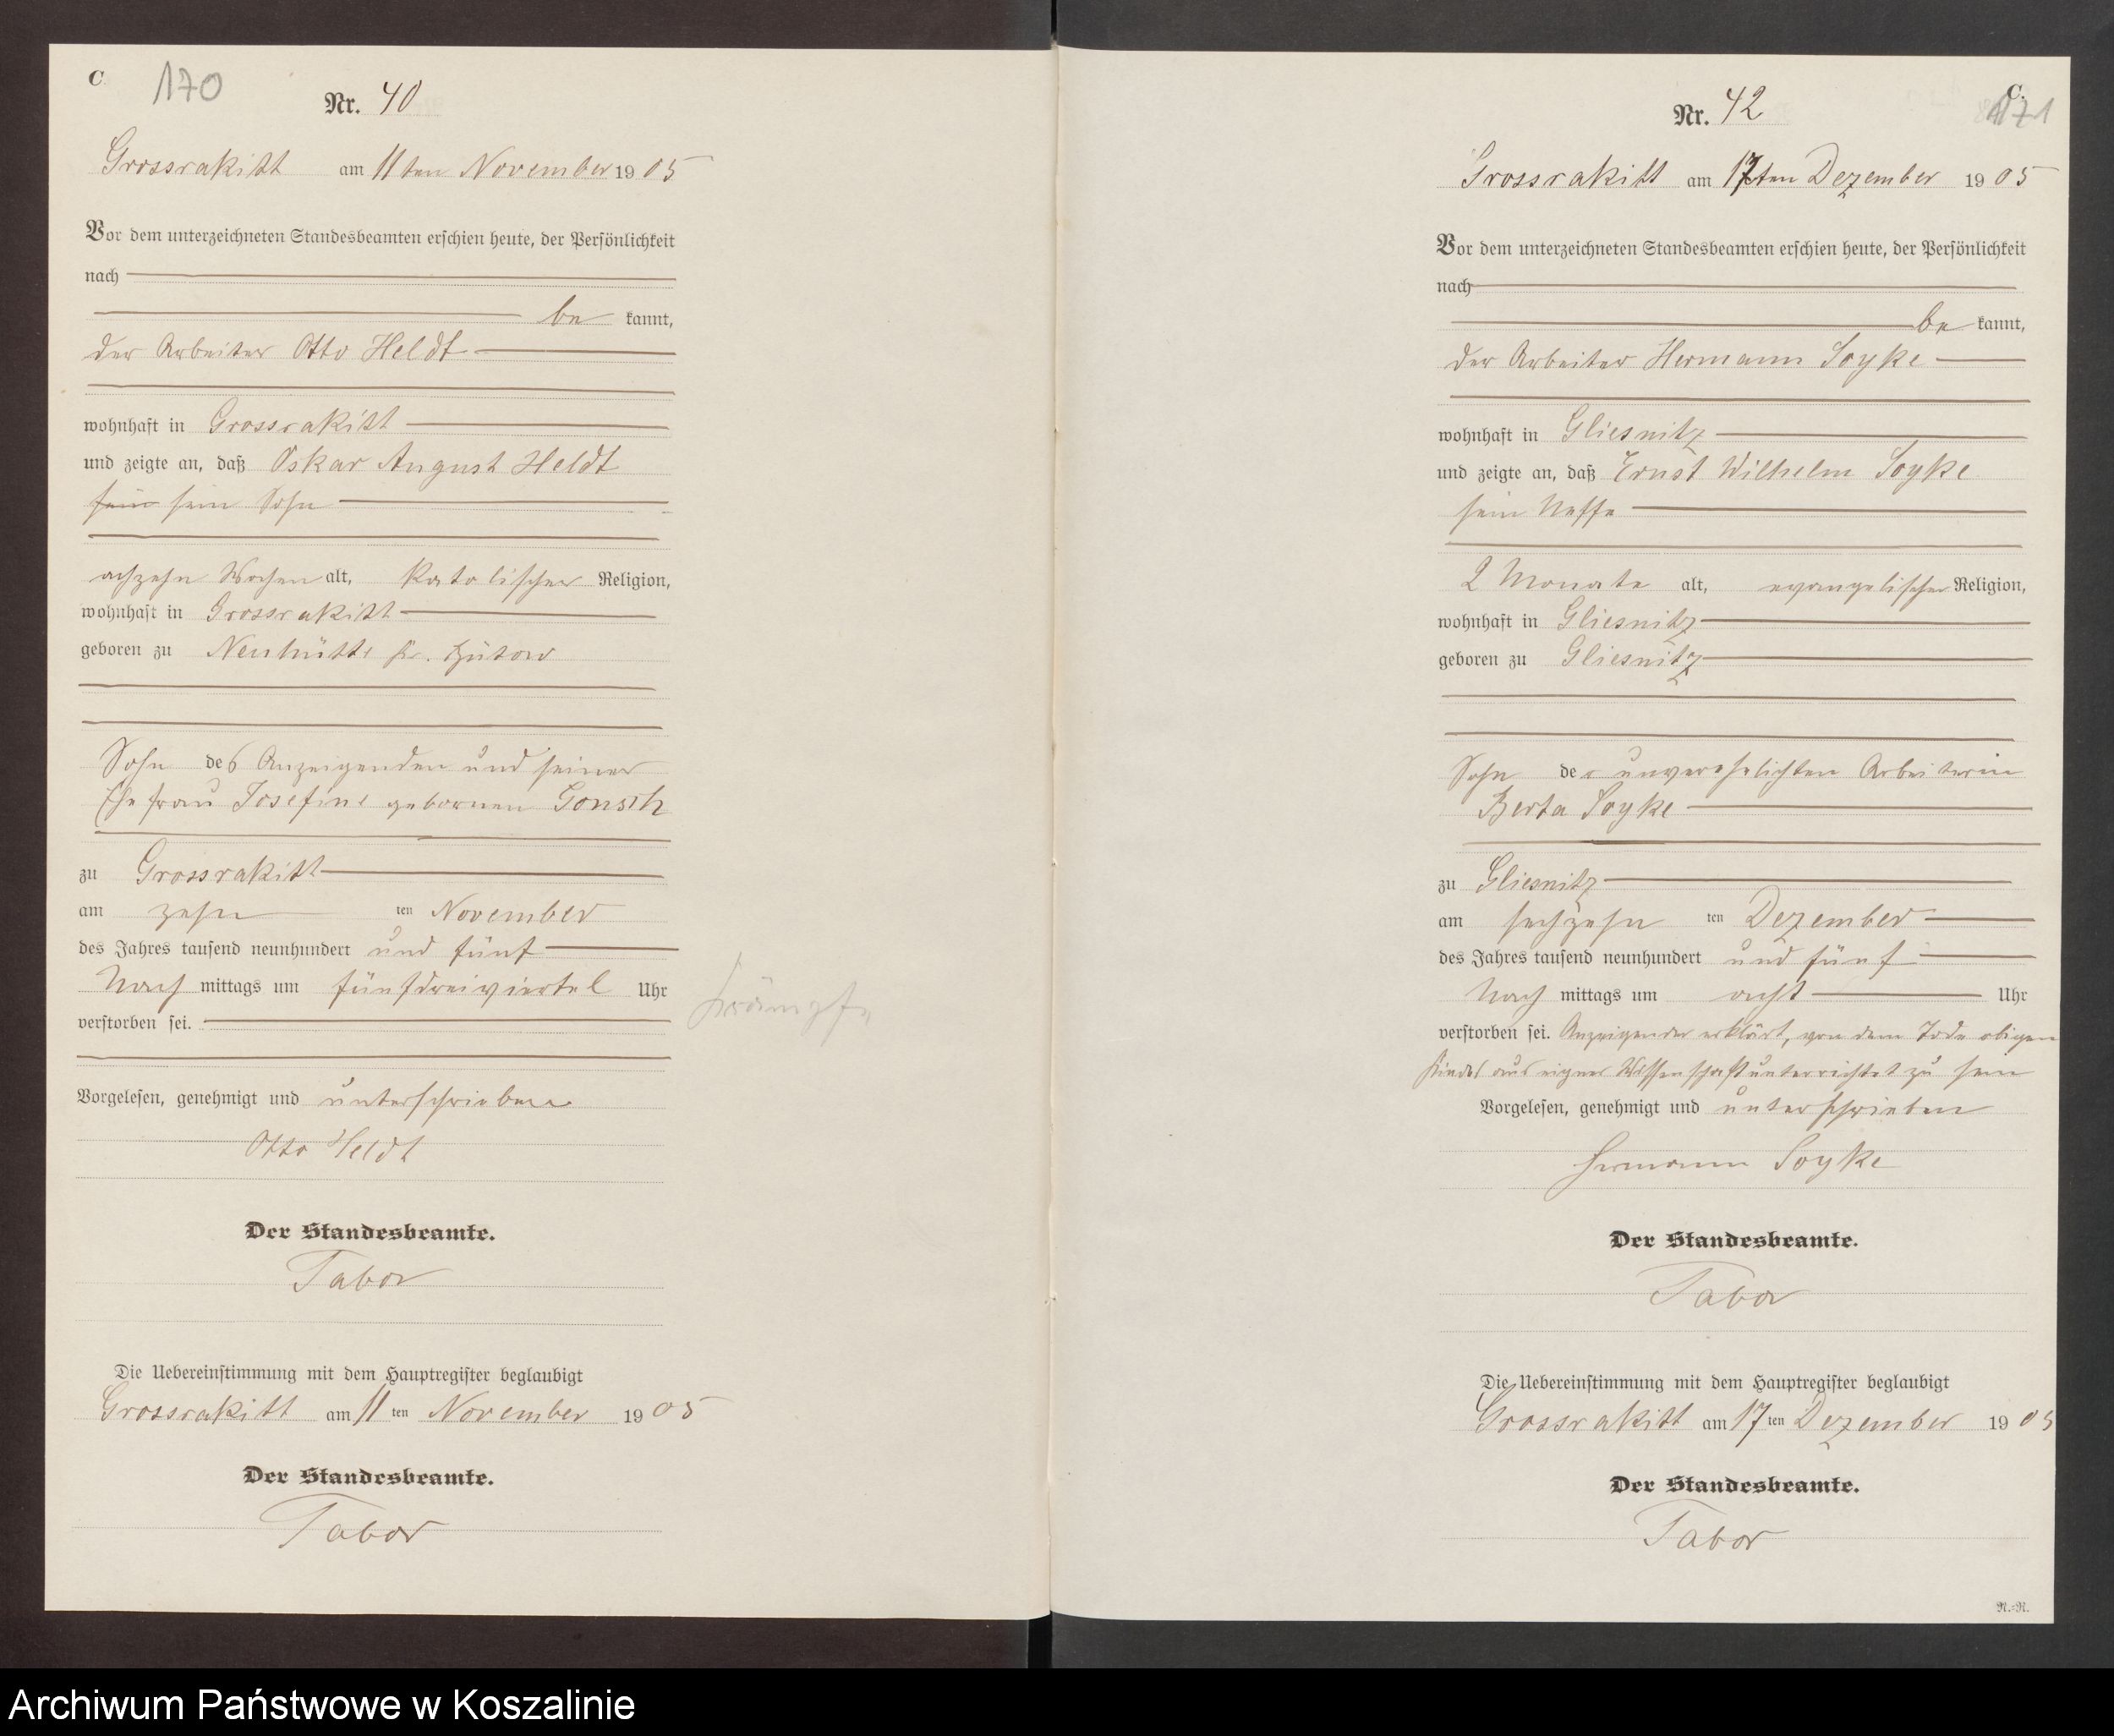 C
170
Nr. 40
Grossrakitt am 11ten November 1905
Vor dem unterzeichneten Standesbeamten erschien heute, der Persönlichkeit
nach
be kannt,
der Arbeiter Otto Heldt
wohnhaft in Grossrakitt
und zeigte an, daß Oskar August Heldt
sein Sohn
achzehn Wochen alt, katolischer Religion,
wohnhaft in Grossrakitt
geboren zu Neuhütte Kr. Bütow
Sohn des Anzeigenden und seiner
Ehefrau Josefine gebornen Gonsch
zu Grossrakitt
am zehn ten November
des Jahres tausend neunhundert und fünf
Nach mittags um fünfdreiviertel Uhr
verstorben sei.
Krämpfe
Vorgelesen, genehmigt und unterschrieben
Otto Heldt
Der Standesbeamte.
Tabor
Die Uebereinstimmung mit dem Hauptregister beglaubigt
Grossrakitt am 11 ten November 1905
Der Standesbeamte.
Tabor
C.
171
Nr. 42
Grossrakitt am 17ten Dezember 1905
Vor dem unterzeichneten Standesbeamten erschien heute, der Persönlichkeit
nach
be kannt,
der Arbeiter Hermann Soyke
wohnhaft in Gliesnitz
und zeigte an, daß Ernst Wilhelm Soyke
sein Neffe
2 Monate alt, evangelischer Religion,
wohnhaft in Gliesnitz
geboren zu Gliesnitz
Sohn der unverehelichten Arbeiterin
Berta Soyke
zu Gliesnitz
am sechzehn ten Dezember
des Jahres tausend neunhundert und fünf
Nach mittags um acht Uhr
verstorben sei. Anzeigender erklärt, von dem Tode obigen
Kindes aus eigner Wissenschaft unterrichtet zu sein
Vorgelesen, genehmigt und unterschrieben
Hermann Soyke
Der Standesbeamte.
Tabor
Die Uebereinstimmung mit dem Hauptregister beglaubigt
Grossrakitt am 17 ten Dezember 1905
Der Standesbeamte.
Tabor
N.-N.
Archiwum Państwowe w Koszalinie